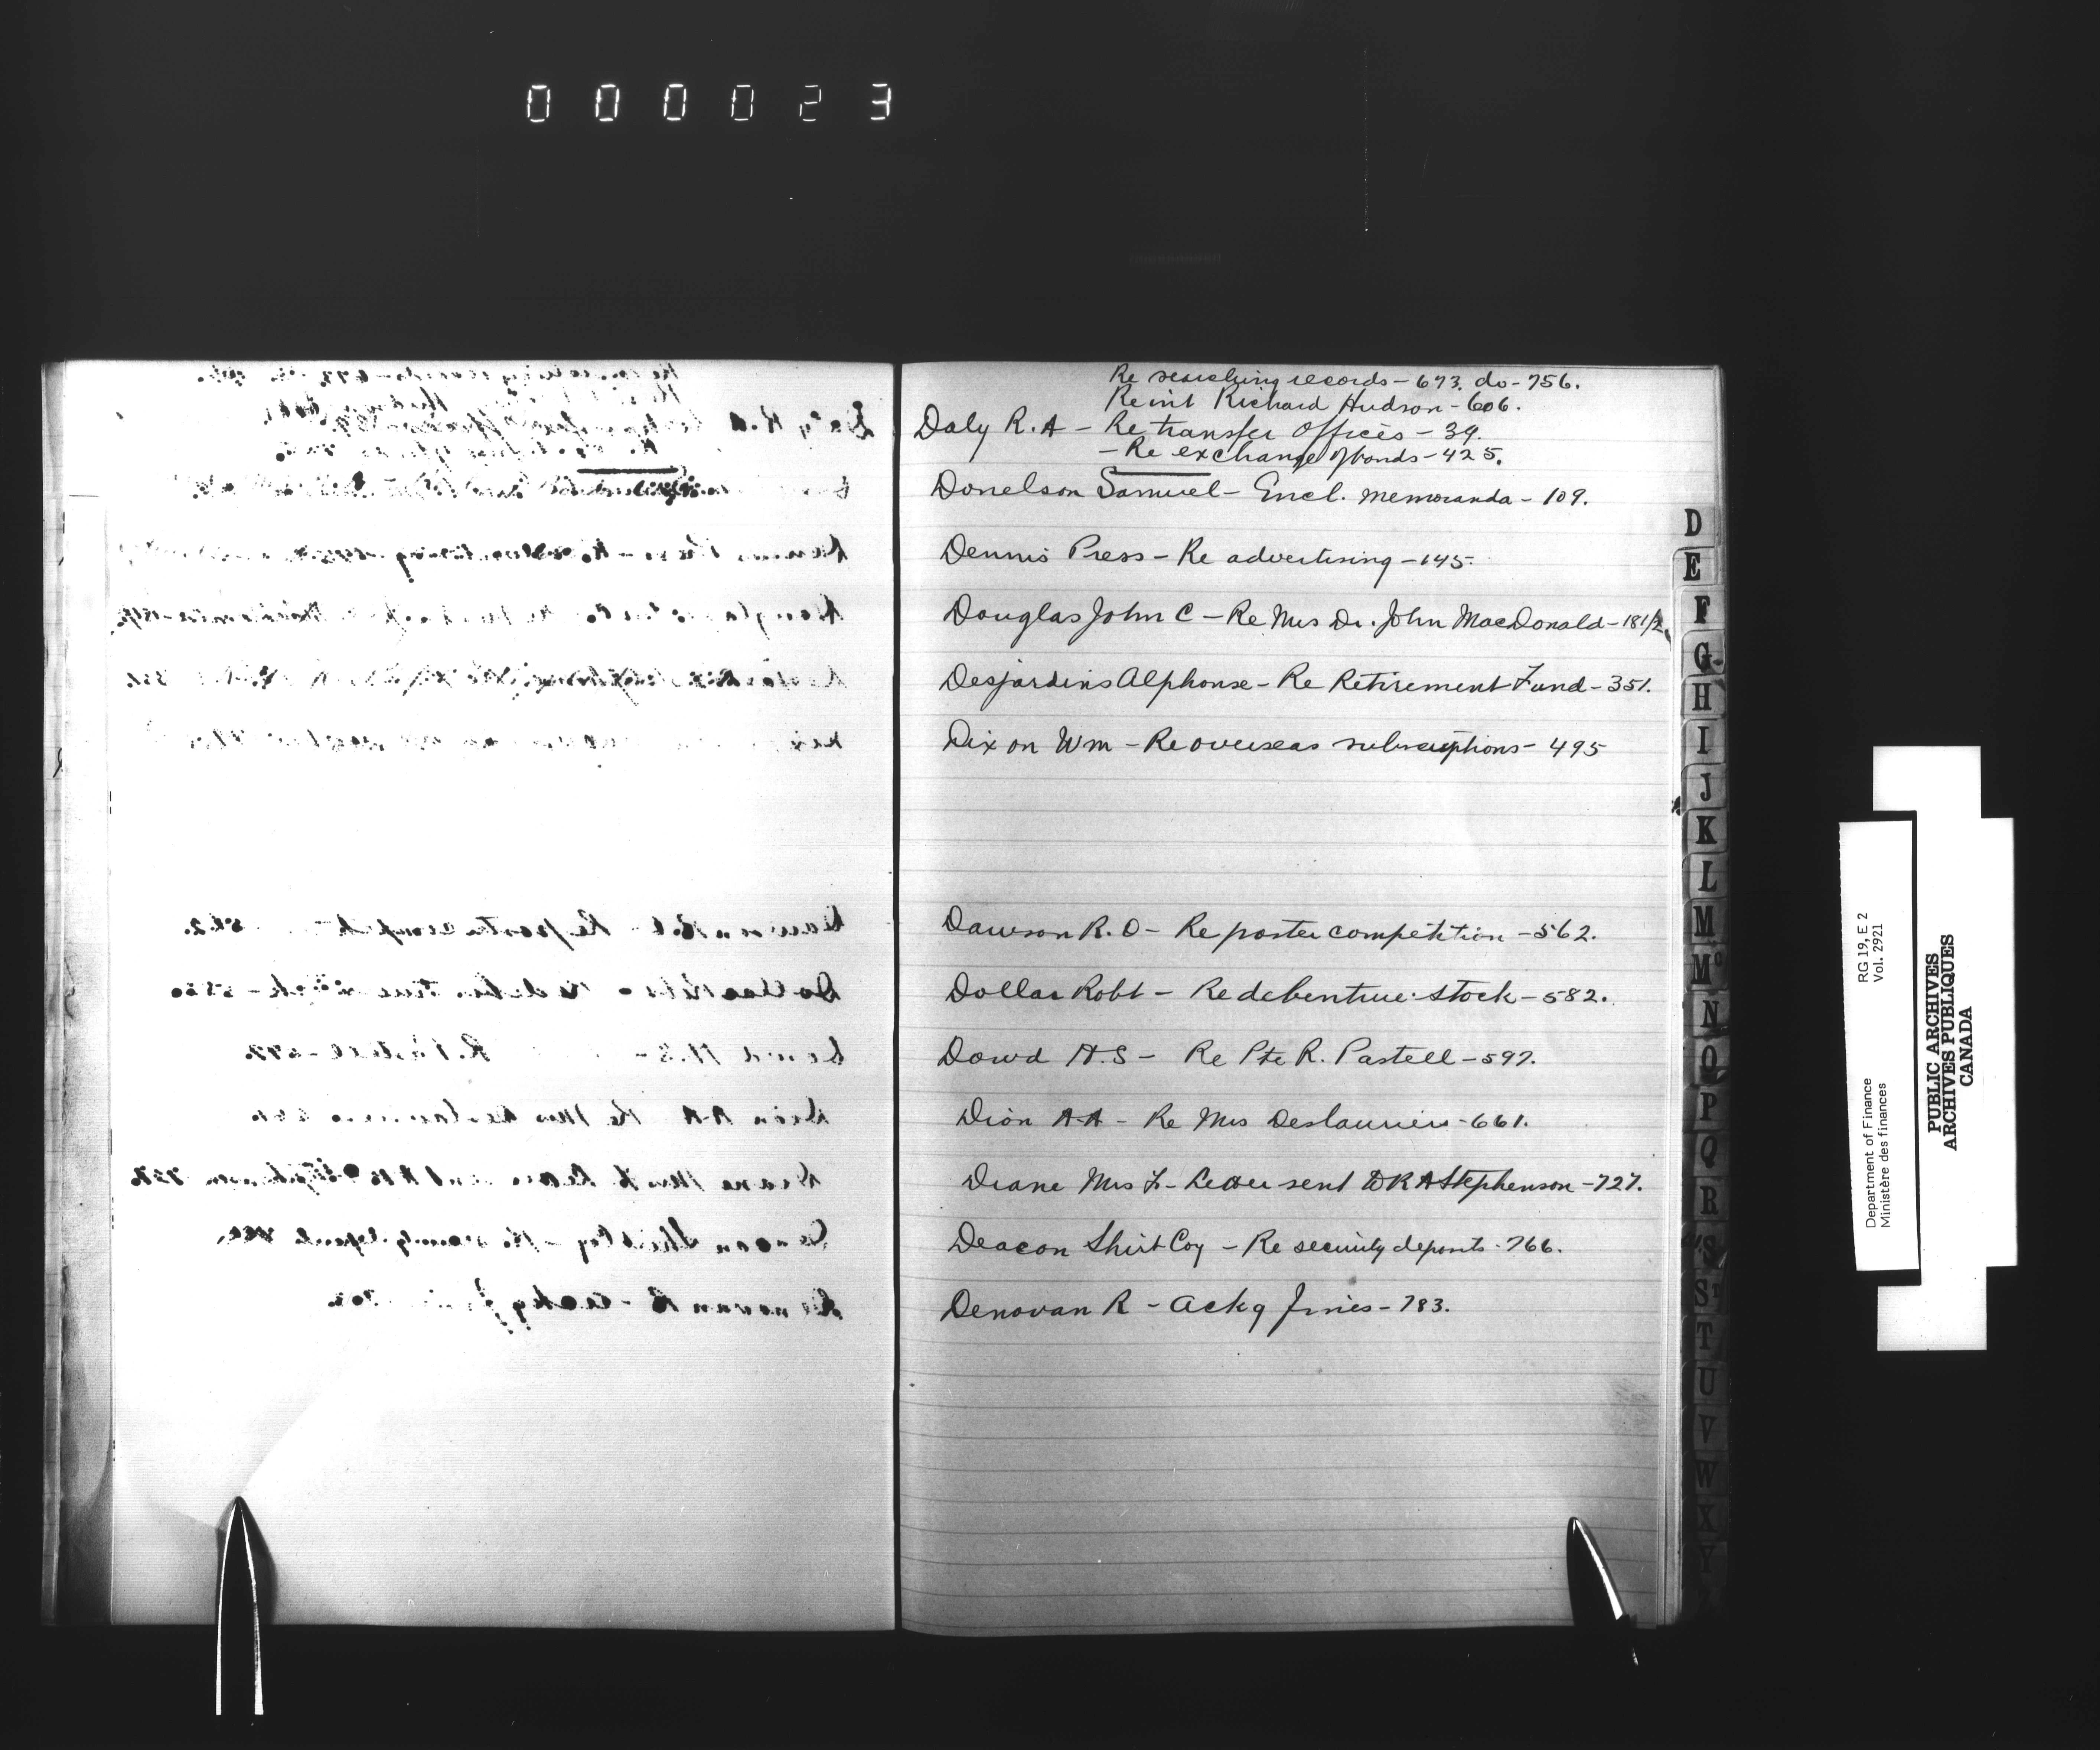 000023
Re searching records - 673. do - 756.
Re int Richard Hudson - 606.
Daly R. A - Re transfer Offices - 39.
- Re exchange of bonds - 425.
Donelson Samuel - Encl. memoranda - 109.
Dennis Press - Re advertising - 145.
Douglas John C - Re Mrs Dr. John MacDonald - 181/2.
Desjardins Alphonse - Re Retirement Fund - 351.
Dixon Wm - Re overseas subscriptions - 495
Dawson R. O - Re poster competition - 562.
Dollar Robt - Re debenture stock - 582.
Dowd H. S - Re Pte R. Pastell - 597.
Dion A A - Re Mrs Deslauriers - 661.
Drane Mrs F - Letter sent to R A Stephenson - 727.
Deacon Shirt Coy - Re security deposits - 766.
Denovan R - Ackg Jinies - 783.
D
E
F
G
H
I
J
K
L
M
Mc
N
O
P
Q
R
S
ST
T
U
V
W
X
Y
Department of Finance RG 19, E 2
Ministère des finances Vol. 2921
PUBLIC ARCHIVES
ARCHIVES PUBLIQUES
CANADA